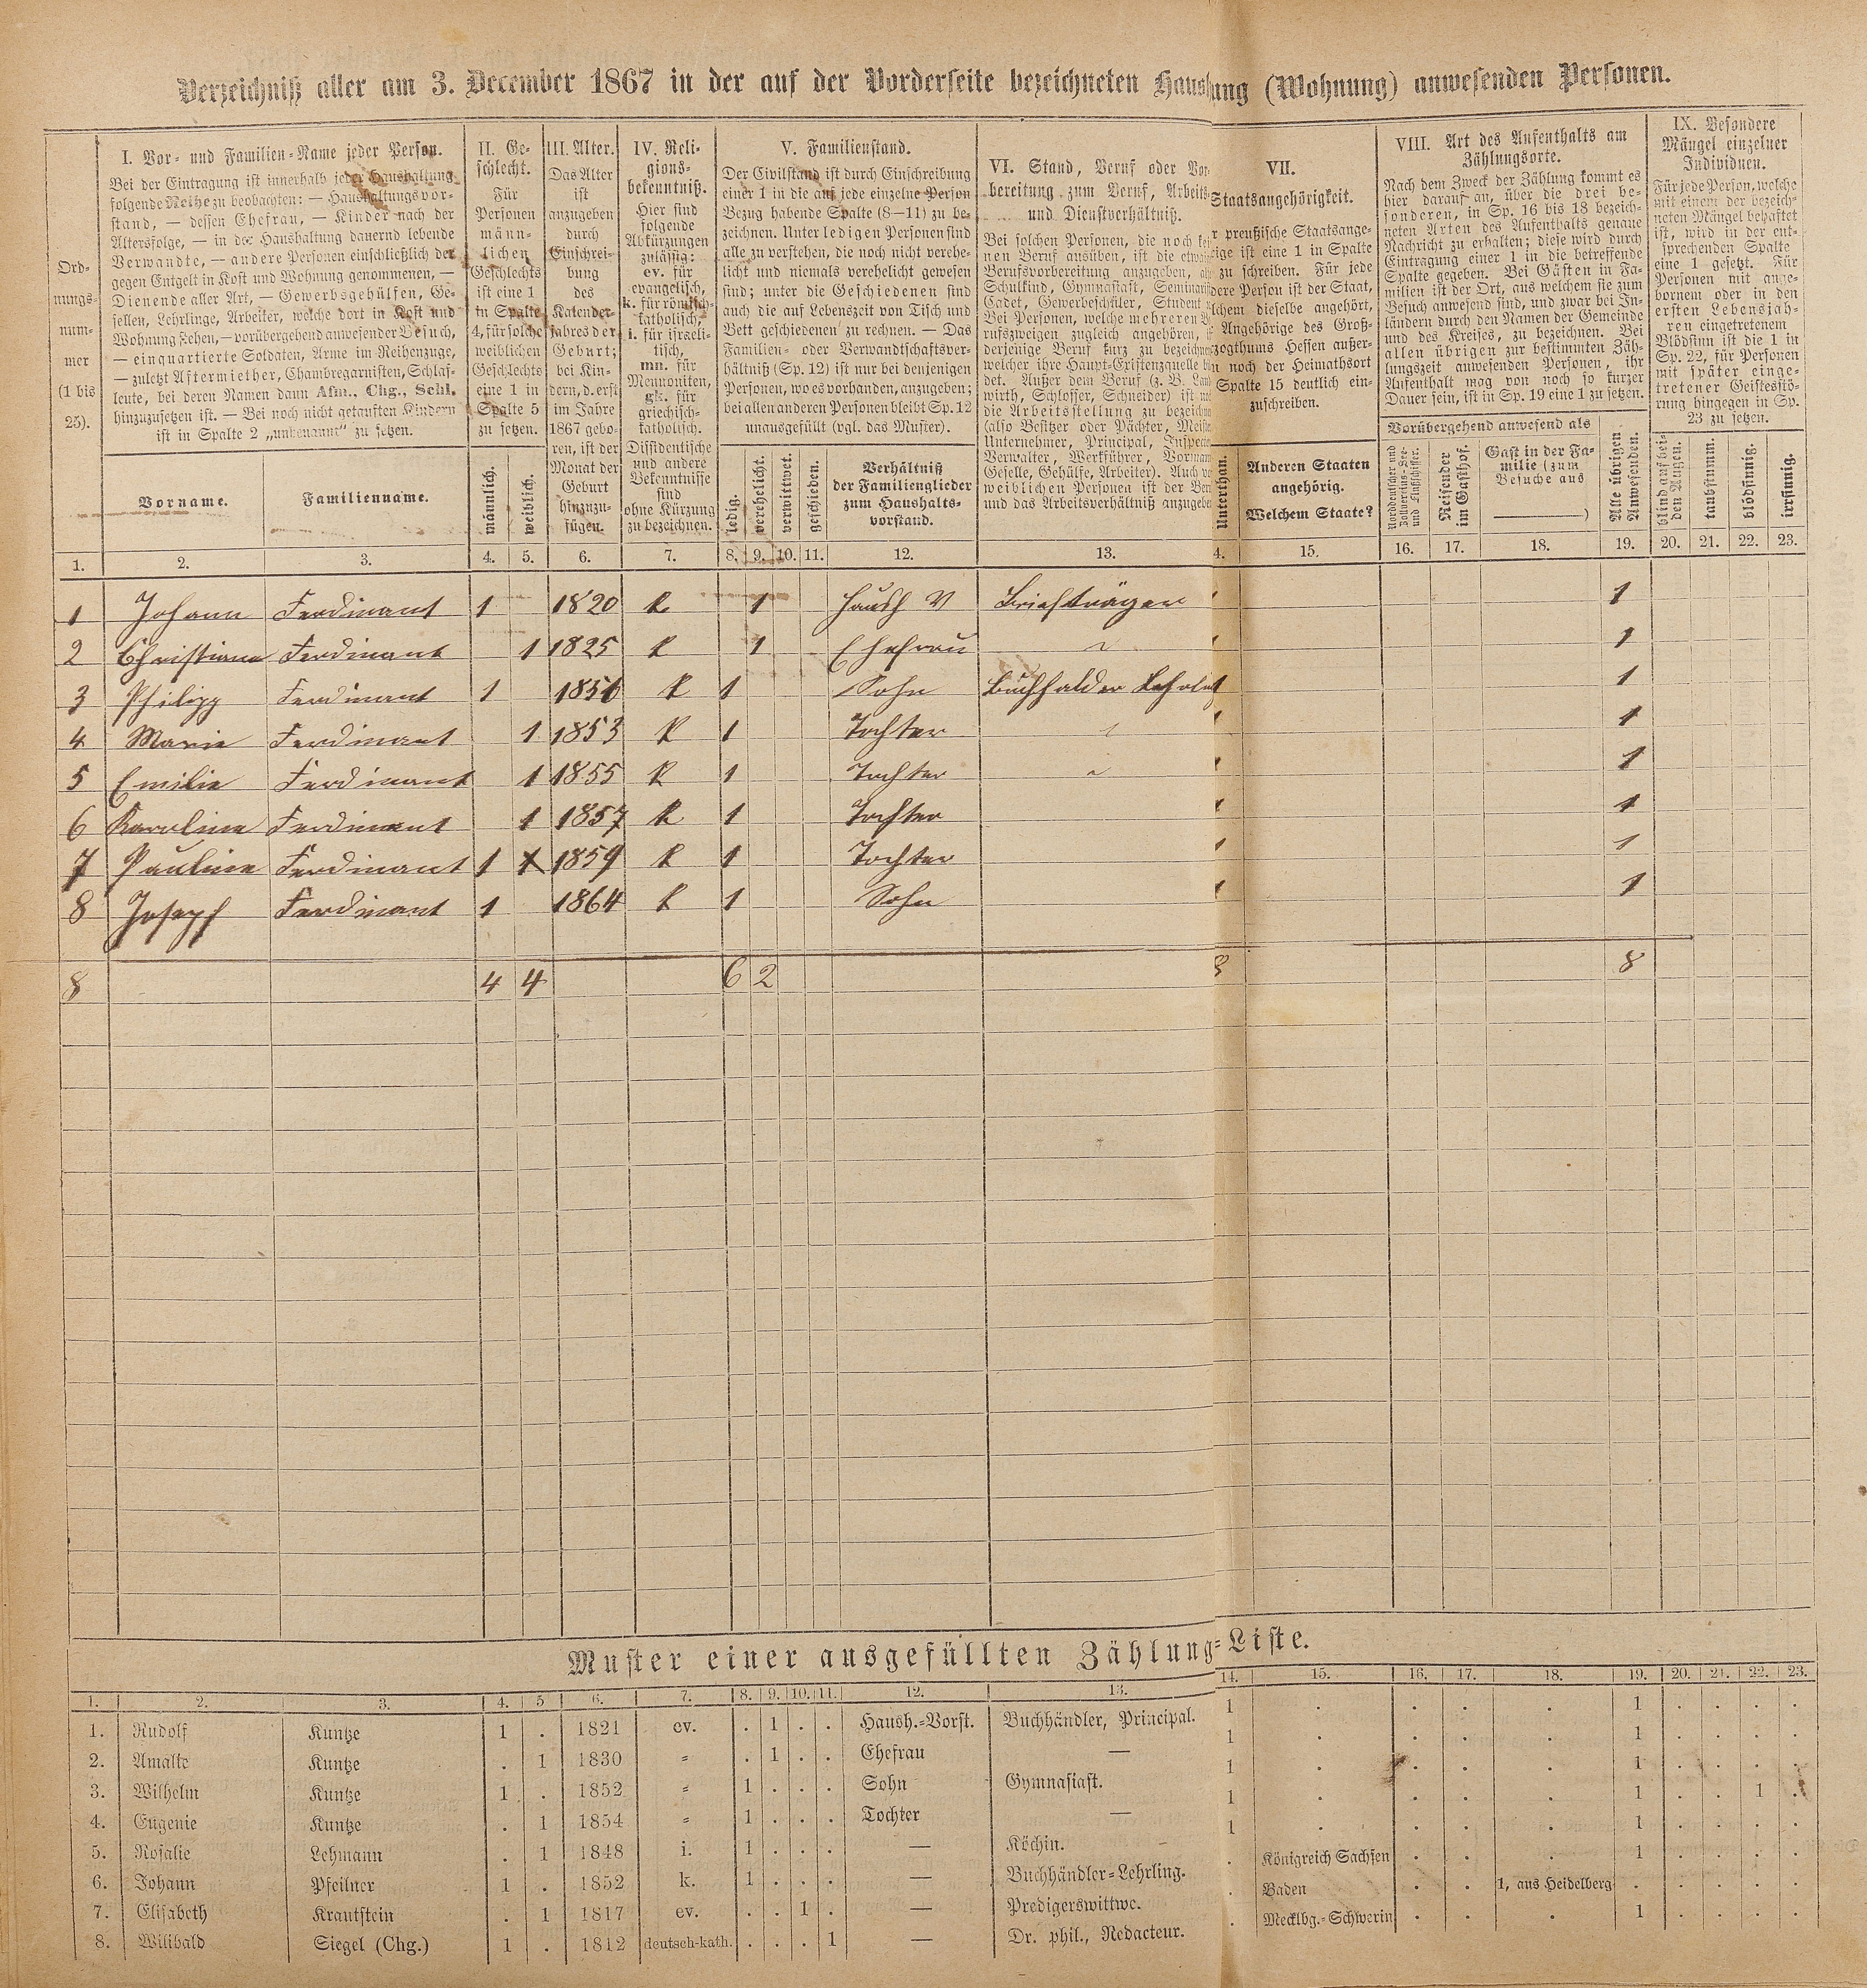 Verzeichniß aller am 3. December 1867 in der auf der Vorderseite bezeichneten Haush ung (Wohnung) anwesenden Personen.
Ord-
nungs-
num-
mer
(1 bis
25).
I. Vor- und Familien-Name jeder Person.
Bei der Eintragung ist innerhalb jeder Haushaltung
folgende Reihe zu beobachten: — Haushaltungsvor-
stand, — dessen Ehefrau, — Kinder nach der
Altersfolge, — in der Haushaltung dauernd lebende
Verwandte, — andere Personen einschließlich der
gegen Entgelt in Kost und Wohnung genommenen, —
Dienende aller Art, — Gewerbsgehülfen, Ge-
sellen, Lehrlinge, Arbeiter, welche dort in Kost und
Wohnung stehen, — vorübergehend anwesender Besuch,
— einquartierte Soldaten, Arme im Reihenzuge,
— zuletzt Aftermiether, Chambregarnisten, Schlaf-
leute, bei deren Namen dann Afm., Chg., Schl.
hinzuzusetzen ist. — Bei noch nicht getauften Kindern
ist in Spalte 2 „unbenannt“ zu setzen.
Vorname.
Familienname.
II. Ge-
schlecht.
Für
Personen
männ-
lichen
Geschlechts
ist eine 1
in Spalte
4, für solche
weiblichen
Geschlechts
eine 1 in
Spalte 5
zu setzen.
männlich.
weiblich.
III. Alter.
Das Alter
ist
anzugeben
durch
Einschrei-
bung
des
Kalender-
jahres der
Geburt;
bei Kin-
dern, d. erst
im Jahre
1867 gebo-
ren, ist der
Monat der
Geburt
hinzuzu-
fügen.
IV. Reli-
gions-
bekenntniß.
Hier sind
folgende
Abkürzungen
zulässig:
ev. für
evangelisch,
k. für römisch-
katholisch,
i. für israeli-
tisch,
mn. für
Mennoniten,
gk. für
griechisch-
katholisch.
Dissidentische
und andere
Bekenntnisse
sind
ohne Kürzung
zu bezeichnen.
V. Familienstand.
Der Civilstand ist durch Einschreibung
einer 1 in die auf jede einzelne Person
Bezug habende Spalte (8—11) zu be-
zeichnen. Unter ledigen Personen sind
alle zu verstehen, die noch nicht verehe-
licht und niemals verehelicht gewesen
sind; unter die Geschiedenen sind
auch die auf Lebenszeit von Tisch und
Bett geschiedenen zu rechnen. — Das
Familien- oder Verwandtschaftsver-
hältniß (Sp. 12) ist nur bei denjenigen
Personen, wo es vorhanden, anzugeben;
bei allen anderen Personen bleibt Sp. 12
unausgefüllt (vgl. das Muster).
ledig.
verehelicht.
verwittwet.
geschieden.
Verhältniß
der Familienglieder
zum Haushalts-
vorstand.
VI. Stand, Beruf oder Vor-
bereitung zum Beruf, Arbeits-
und Dienstverhältniß.
Bei solchen Personen, die noch kei
nen Beruf ausüben, ist die etwai
Berufsvorbereitung anzugeben, al
Schulkind, Gymnasiast, Seminarist
Cadet, Gewerbeschüler, Student
Bei Personen, welche mehreren Be
rufszweigen zugleich angehören, i
derjenige Beruf kurz zu bezeichnen
welcher ihre Haupt-Existenzquelle bil
det. Außer dem Beruf (z. B. Land
wirth, Schlosser, Schneider) ist
die Arbeitsstellung zu bezeichne
(also Besitzer oder Pächter, Meiste
Unternehmer, Principal, Inspector
Verwalter, Werkführer, Vormann
Geselle, Gehülfe, Arbeiter). Auch
weiblichen Personen ist der Ber
und das Arbeitsverhältniß anzugebe
VII.
Staatsangehörigkeit.
r preußische Staatsange-
rige ist eine 1 in Spalte
zu schreiben. Für jede
dere Person ist der Staat,
lchem dieselbe angehört,
Angehörige des Groß-
zogthums Hessen außer-
noch der Heimathsort
Spalte 15 deutlich ein-
zuschreiben.
Unterthan.
Anderen Staaten
angehörig.
Welchem Staate?
VIII. Art des Aufenthalts am
Zählungsorte.
Nach dem Zweck der Zählung kommt es
hier darauf an, über die drei be-
sonderen, in Sp. 16 bis 18 bezeich-
neten Arten des Aufenthalts genaue
Nachricht zu erhalten; diese wird durch
Eintragung einer 1 in die betreffende
Spalte gegeben. Bei Gästen in Fa-
milien ist der Ort, aus welchem sie zum
Besuch anwesend sind, und zwar bei In-
ländern durch den Namen der Gemeinde
und des Kreises, zu bezeichnen. Bei
allen übrigen zur bestimmten Zäh-
lungszeit anwesenden Personen, ihr
Aufenthalt mag von noch so kurzer
Dauer sein, ist in Sp. 19 eine 1 zu setzen.
Vorübergehend anwesend als
Norddeutscher und
Zollvereins-See-
und Flußschiffer.
Reisender
im Gasthof.
Gast in der Fa-
milie (zum
Besuche aus
)
Alle übrigen
Anwesenden.
IX. Besondere
Mängel einzelner
Individuen.
Für jede Person, welche
mit einem der bezeich-
neten Mängel behaftet
ist, wird in der ent-
sprechenden Spalte
eine 1 gesetzt. Für
Personen mit ange-
bornem oder in den
ersten Lebensjah-
ren eingetretenem
Blödsinn ist die 1 in
Sp. 22, für Personen
mit später einge-
tretener Geistesstö-
rung hingegen in Sp.
23 zu setzen.
blind auf bei-
den Augen.
taubstumm.
blödsinnig.
irrsinnig.
1. 2. 3. 4. 5. 6. 7. 8. 9. 10. 11. 12. 13. 4. 15. 16. 17. 18. 19. 20. 21. 22. 23.
1 Johann Ferdinant 1 1820 k 1 Haush V Briefträger 1
2 Christiana Ferdinant 1 1825 k 1 Ehefrau 1
3 Philipp Ferdinant 1 1851 k 1 Sohn Buchhalder 1 1
4 Marie Ferdinant 1 1853 k 1 Tochter 1
5 Emilie Ferdinant 1 1855 k 1 Tochter 1
6 Karoline Ferdinant 1 1857 k 1 Tochter 1
7 Pauline Ferdinant 1 1 1859 k 1 Tochter 1
8 Joseph Ferdinant 1 1864 k 1 Sohn 1
8 4 4 6 2 8 8
Muster einer ausgefüllten Zählung-Liste.
1. 2. 3. 4. 5 6. 7. 8. 9. 10. 11. 12. 13. 14. 15. 16. 17. 18. 19. 20. 21. 22. 23.
1. Rudolf Kuntze 1 . 1821 ev. . 1 . . Haush.-Vorst. Buchhändler, Principal. 1 . . . . 1 . . . .
2. Amalie Kuntze . 1 1830 = . 1 . . Ehefrau — 1 . . . . 1 . . . .
3. Wilhelm Kuntze 1 . 1852 = 1 . . . Sohn Gymnasiast. 1 . . . . 1 . . . .
4. Eugenie Kuntze . 1 1854 = 1 . . . Tochter — 1 . . . . 1 . . 1 .
5. Rosalie Lehmann . 1 1848 i. 1 . . . — Köchin. 1 . . . . 1 . . . .
6. Johann Pfeilner 1 . 1852 k. 1 . . . — Buchhändler-Lehrling. . Königreich Sachsen . . . 1 . . . .
7. Elisabeth Krautstein . 1 1817 ev. . . 1 . — Predigerswittwe. . Baden . . 1, aus Heidelberg . . . . .
8. Wilibald Siegel (Chg.) 1 . 1812 deutsch-kath. . . . 1 — Dr. phil., Redacteur. . Mecklbg.-Schwerin . . . 1 . . . .